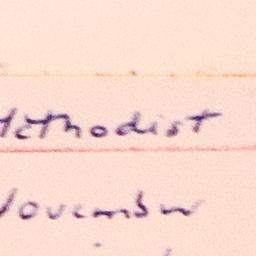 Methodist
November